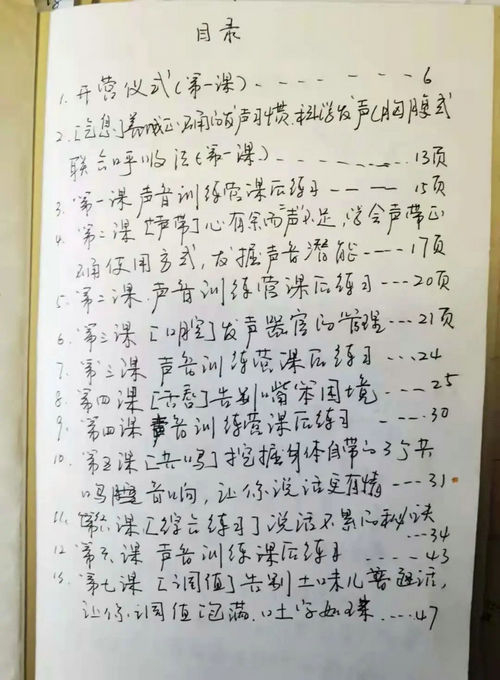 目录
1. 开营仪式(第一课)---------6
2. [气息]养成正确的发声习惯.科学发声(胸腹式
联合呼吸法(第一课)--------13页
3. 第一课声音训练营课后练习---15页
4. 第二课[声带]心有余而声不足,学会声带正
确使用方式,发掘声音潜能----17页
5. 第二课.声音训练营课后练习---20页
6. 第三课[口腔]发声器官的管理---21页
7. 第三课 声音训练营课后练习---24
8. 第四课[舌唇]告别嘴笨困境---25
9. 第四课 声音训练营课后练习---30
10. 第五课[共鸣]挖掘身体自带的3个共
鸣腔音响,让你说话更有情---31
11. 第六课[综合练习]说话不累的秘诀
---34
12. 第六课 声音训练课后练习----43
13. 第七课[调值]告别土味儿普通话,
让你调值饱满.口土字如珠----47